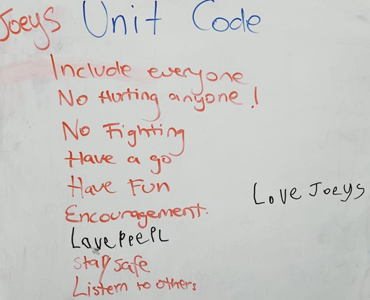 Joeys Unit Code
Include everyone
No Hurting anyone!
No Fighting
Have a go
Have Fun
Love Joeys
Encouragement.
Love PeePL
Stay safe
Listern to others